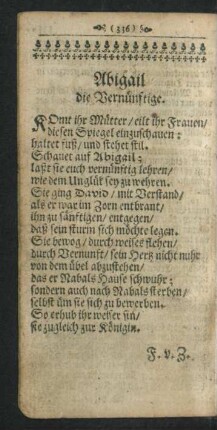 (336)
Abigail
die Vernünftige.
KOmt ihr Mütter/ eilt ihr Frauen/
diesen Spiegel einzuschauen:
haltet fuß/ und stehet stil.
Schauet auf Abigail:
laßt sie euch vernünftig lehren/
wie dem Unglük sey zu wehren.
Sie ging David/ mit Verstand/
als er war im Zorn entbrant/
ihn zu sänftigen/ entgegen/
daß sein sturm sich möchte legen.
Sie bewog/ durch weises flehen/
durch Vernunft/ sein Hertz nicht nuhr
von dem übel abzustehen/
das er Nabals Hause schwuhr;
sondern auch nach Nabals sterben/
selbst üm sie sich zu bewerben.
So erhub ihr weiser sin/
sie zugleich zur Königin.
F. v. Z.